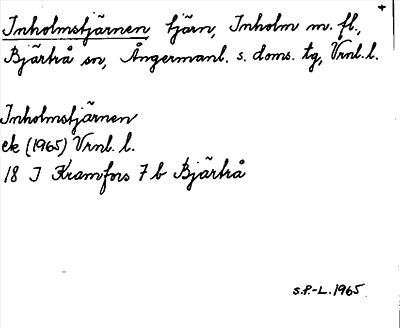 Inholmstjärnen, tjärn, Inholm m. fl.,
Bjärtrå sn, Ångermanl. s. doms. tg, Vrnl. l.
Inholmstjärnen
ek (1965) Vrnl. l.
18 J Kramfors 7 b Bjärtrå
S.P.-L. 1965